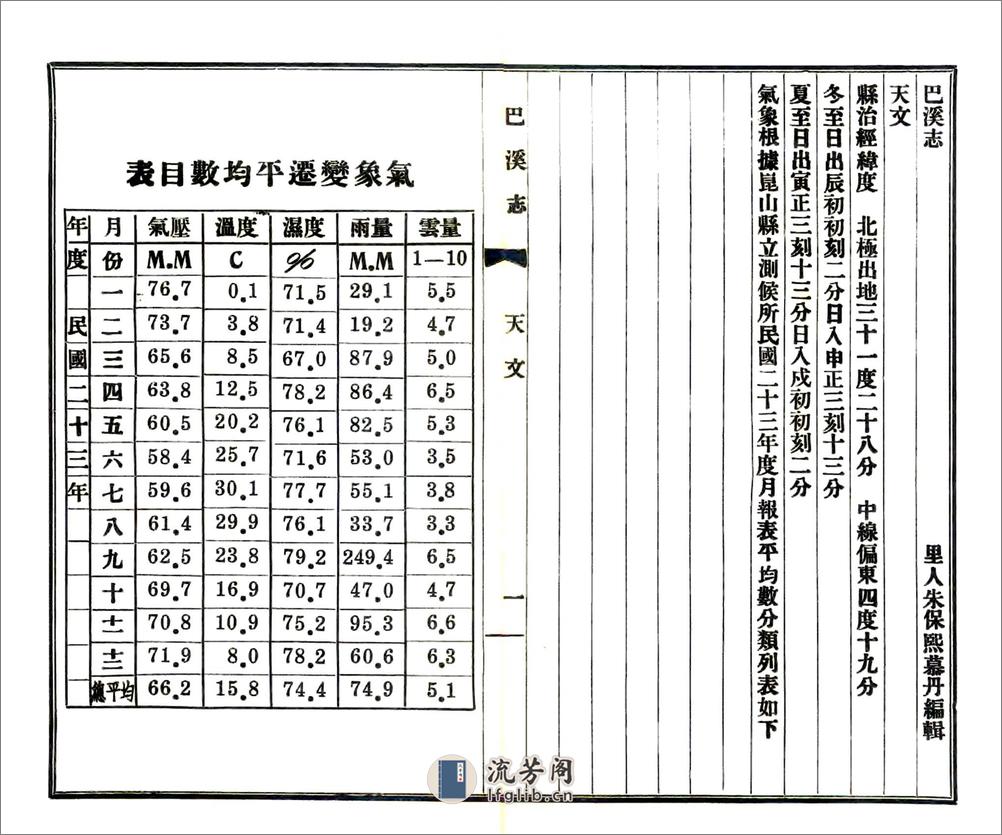 巴溪志
里人朱保熙慕丹編輯
天文
縣治經緯度　北極出地三十一度二十八分　中線偏東四度十九分
冬至日出辰初初刻二分日入申正三刻十三分
夏至日出寅正三刻十三分日入戌初初刻二分
氣象根據崑山縣立測候所民國二十三年度月報表平均數分類列表如下
巴溪志
天文
一
氣象變遷平均數目表
年度 月份 氣壓 溫度 濕度 雨量 雲量
M.M C % M.M 1—10
民國二十三年
一 76.7 0.1 71.5 29.1 5.5
二 73.7 3.8 71.4 19.2 4.7
三 65.6 8.5 67.0 87.9 5.0
四 63.8 12.5 78.2 86.4 6.5
五 60.5 20.2 76.1 82.5 5.3
六 58.4 25.7 71.6 53.0 3.5
七 59.6 30.1 77.7 55.1 3.8
八 61.4 29.9 76.1 33.7 3.3
九 62.5 23.8 79.2 249.4 6.5
十 69.7 16.9 70.7 47.0 4.7
十一 70.8 10.9 75.2 95.3 6.6
十二 71.9 8.0 78.2 60.6 6.3
總平均 66.2 15.8 74.4 74.9 5.1
流芳阁
lfglib.cn